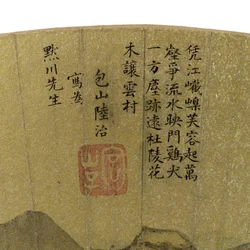 凭江巘嵲芙容起萬
壑爭流水映門鷄犬
一方塵跡遠杜陵花
木讓雲村
包山陸治
寫為
默川先生